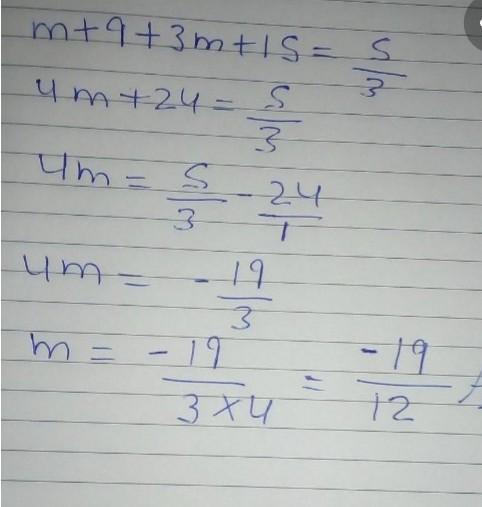 m+9+3m+15 = 5/3
4m+24 = 5/3
4m = 5/3 - 24/1
4m = - 19/3
m = -19/3×4 = -19/12